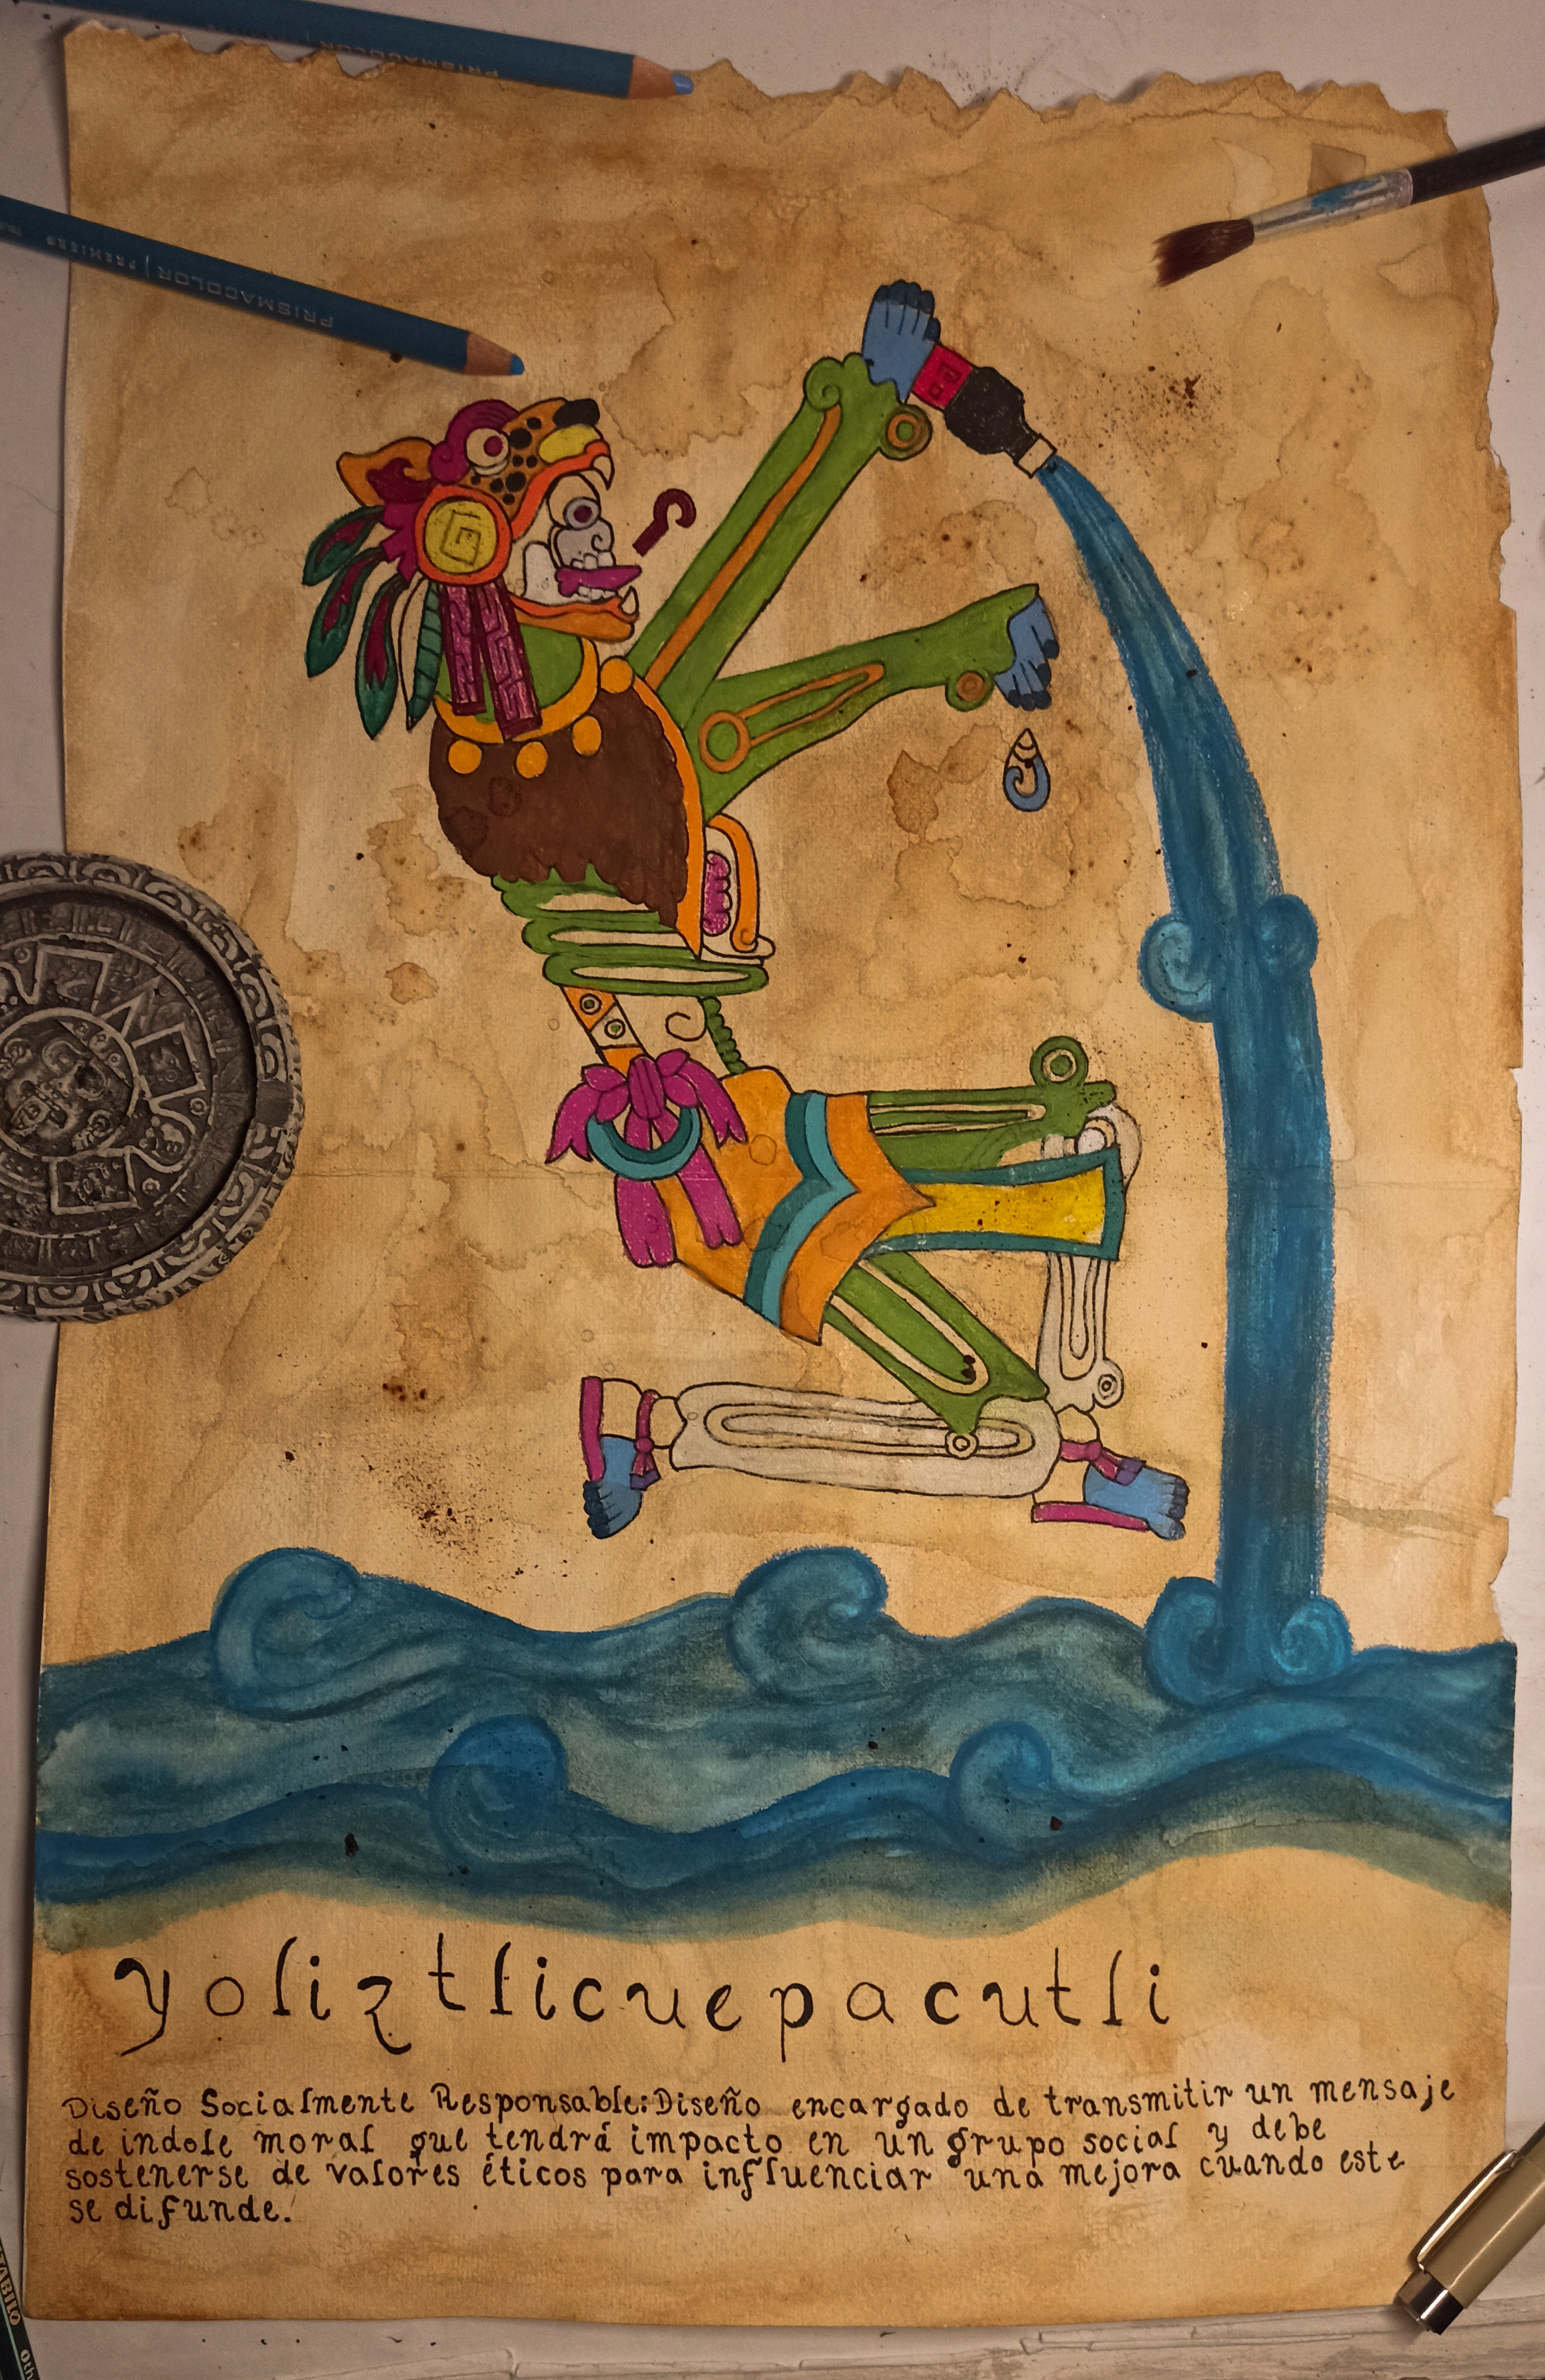 PRISMACOLOR
PRISMACOLOR | PREMIER
yoliztlicuepacutli
Diseño Socialmente Responsable: Diseño encargado de transmitir un mensaje
de indole moral que tendrá impacto en un grupo social y debe
sostenerse de valores éticos para influenciar una mejora cuando este
se difunde.